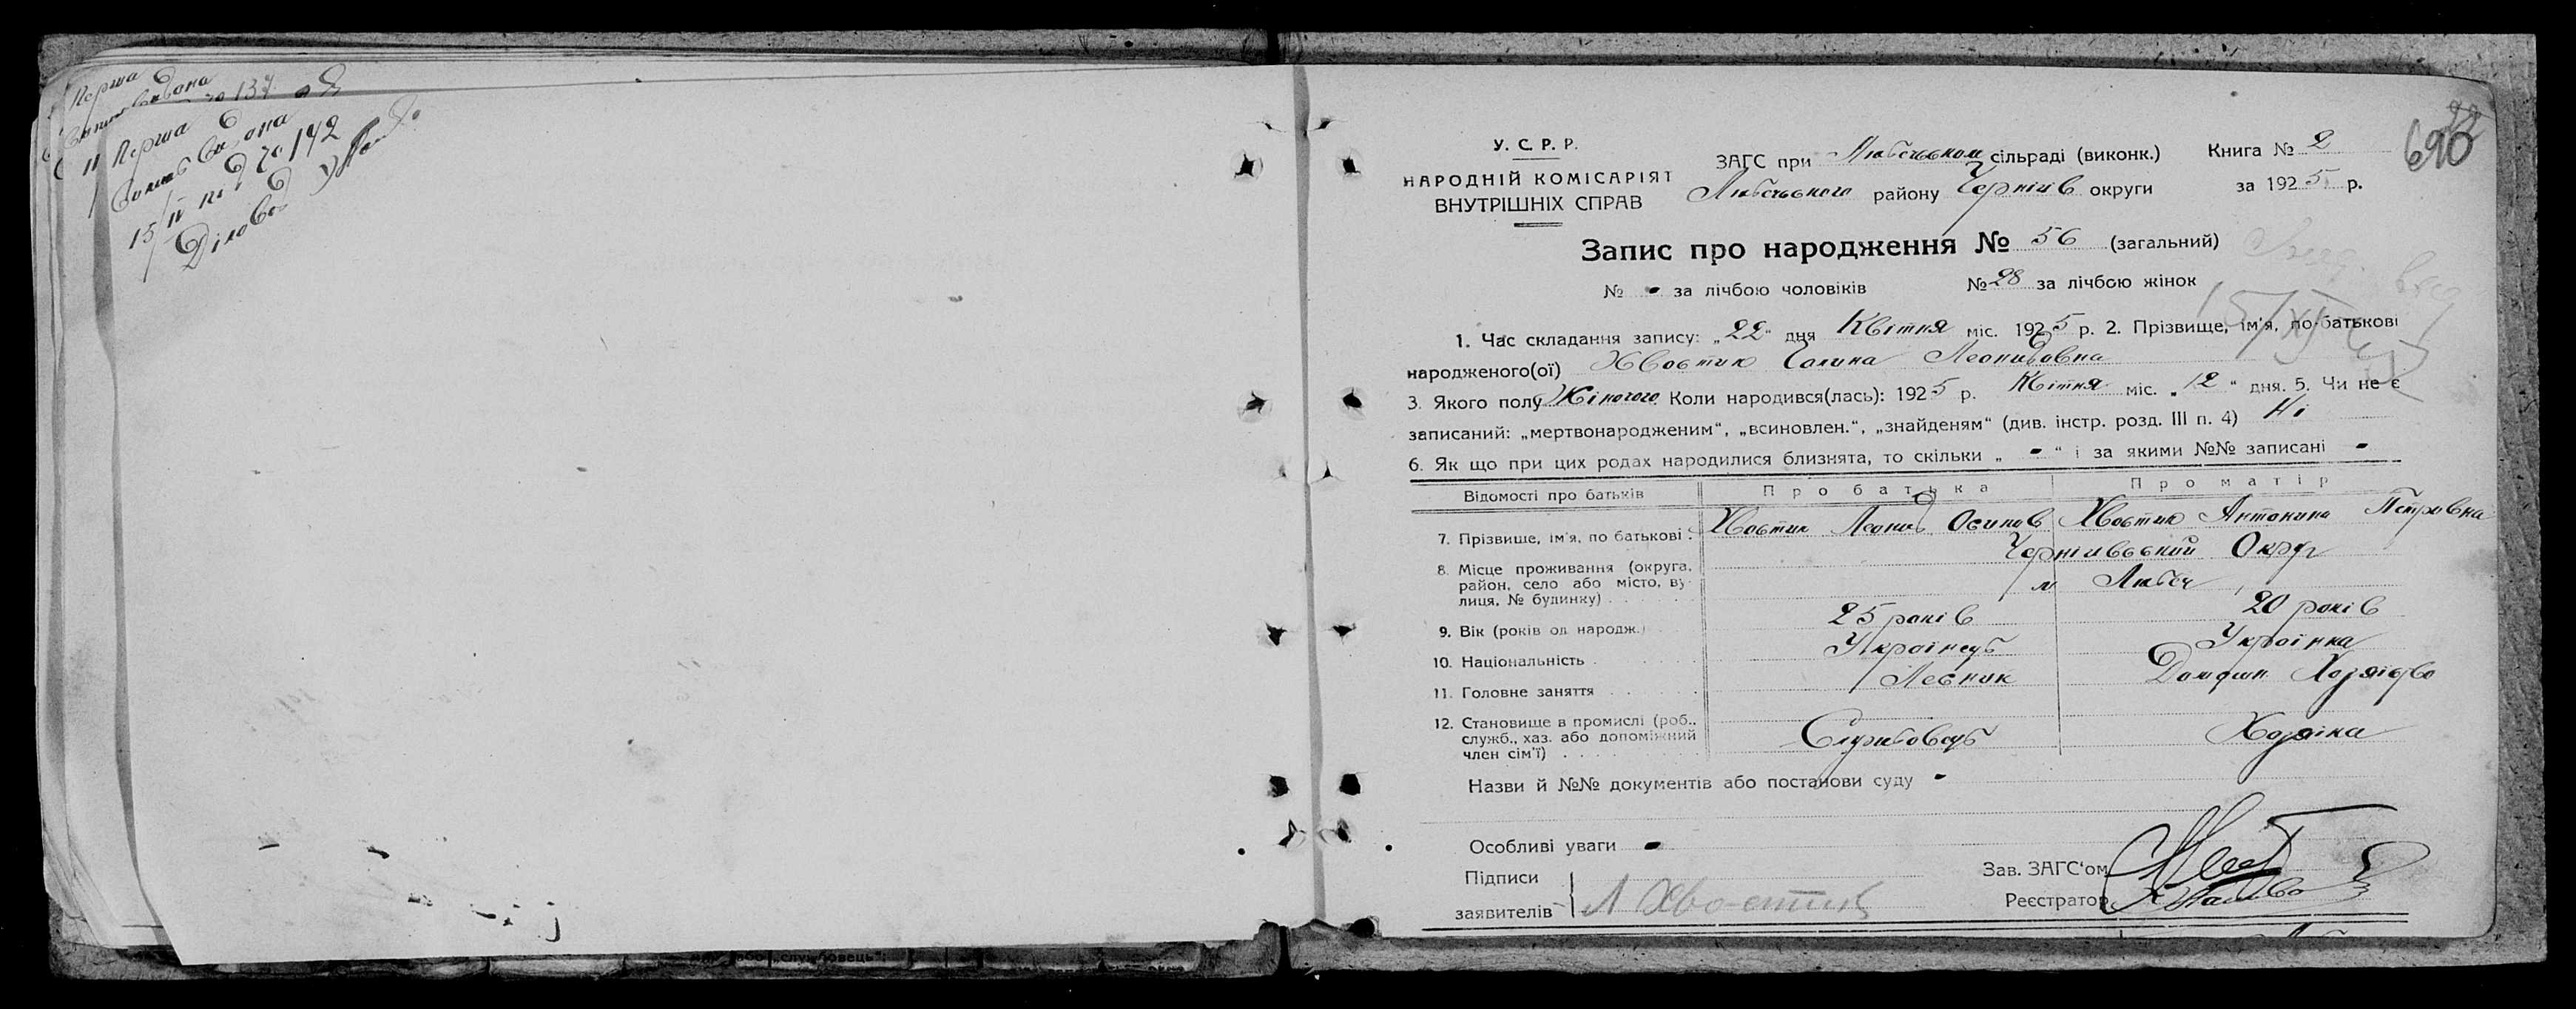 Перша
Перша
15/IV по 142
Діловод
690
У. С. Р. Р.
НАРОДНІЙ КОМІСАРІЯТ
ВНУТРІШНІХ СПРАВ
ЗАГС при Любечьком сільраді (виконк.) Книга № 2
Любечьского району Чернігів округи за 1925 р.
Запис про народження № 56 (загальний)
№ - за лічбою чоловіків № 28 за лічбою жінок
1. Час складання запису: „22“ дня Квітня міс. 1925 р. 2. Прізвище, ім'я, по-батькові
народженого(ої) Хвостик Галина Леонидовна
3. Якого полу Жіночого Коли народився(лась): 1925 р. Квітня міс. „12“ дня. 5. Чи не є
записаний: „мертвонародженим“, „всиновлен.“, „знайденям“ (див. інстр. розд. III п. 4) Ні
6. Як що при цих родах народилися близнята, то скільки „ - “ і за якими №№ записані -
Відомості про батьків Про батька Про матір
7. Прізвище, ім'я, по батькові: Хвостик Леонид Осипов Хвостик Антонина Петровна
8. Місце проживання (округа, Чернігивьской Округ
район, село або місто, ву-
лиця, № будинку) м Любеч
9. Вік (років од народж.) 25 років 20 років
10. Національність Українець Українка
11. Головне заняття Лесник Домашн Хозяйство
12. Становище в промислі (роб.,
служб., хаз. або допоміжний
член сім'ї) Службовець Хозяіка
Назви й №№ документів або постанови суду -
Особливі уваги -
Підписи
заявителів Л Хвостик
Зав. ЗАГС'ом
Реєстратор